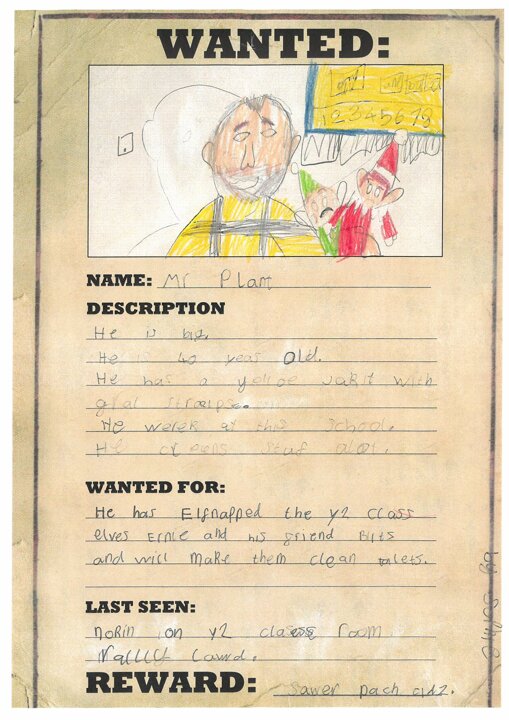 WANTED:
123456
NAME: Mr Plant
DESCRIPTION
He is big.
He is 40 years old.
He has a yelloe jakit with
graI straips.
He werek at this school.
He cleens stuf alot.
WANTED FOR:
He has Elfnapped the y2 class
elves Ernie and his friend Bits
and will make them clean tolets.
LAST SEEN:
norin on y2 class room
REWARD: sawer pach cidz.
by